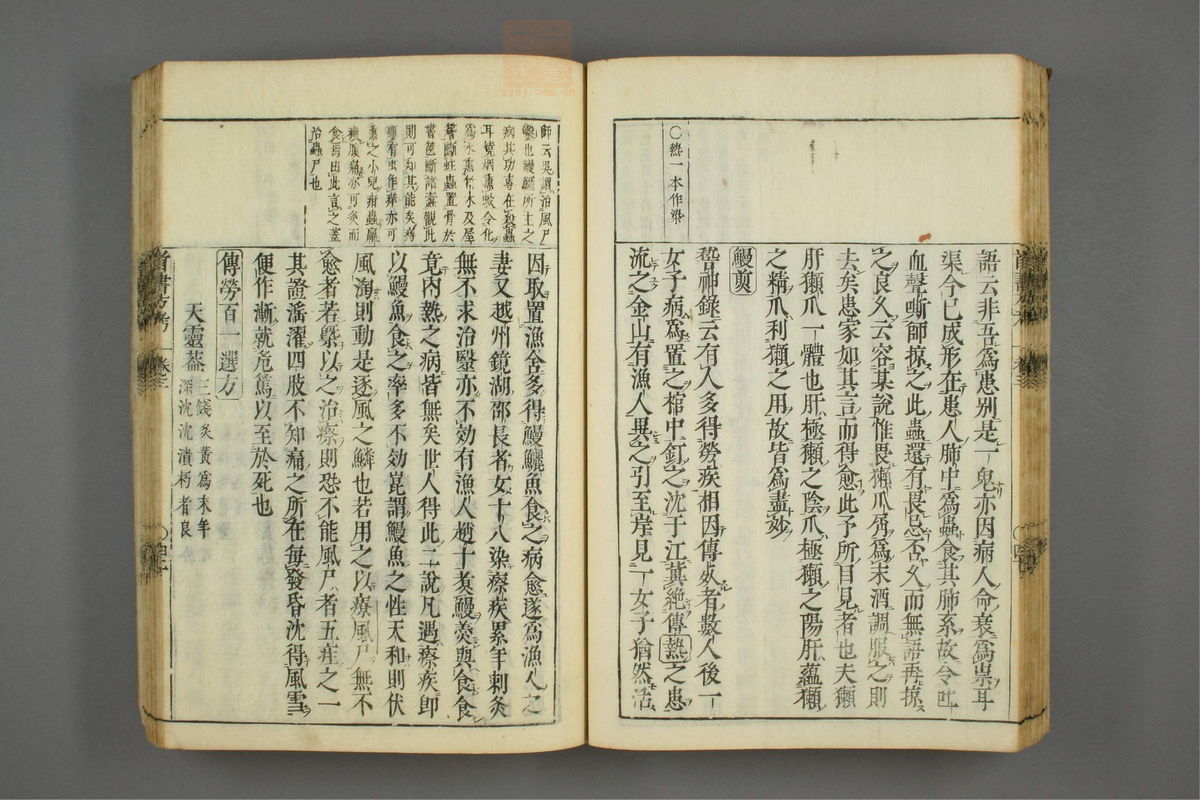 〇熱一本作染
語云非吾為患别是一鬼亦因病人命衰為祟耳
渠今已成形在患人肺中為蟲食其肺系故令吐
血聲嘶師掠之此蟲還有畏忌否久而無語再掠
之良久云容某說惟畏獺爪屑為末酒調服之則
去矣患家如其言而得愈此予所目見者也夫獺
肝獺爪一體也肝極獺之陰爪極獺之陽肝蘊獺
之精爪利獺之用故皆為盡妙
鰻煎
稽神錄云有人多得勞疾相因傳死者數人後一
女子病為置之棺中釘之沈于江冀絶傳熱之患
流之金山有漁人異之引至岸見一女子猶然活
師云吳謂治風尸
蟲也鰻鱺所主之
病其功專在殺蟲
耳燒烟熏蚊令化
為水熏竹木及屋
舍斷蛀蟲置骨於
書笥斷諸蠹觀此
則可知其能矣痔
瘻有虫作痒亦可
熏之小兒疳蟲羸
瘦腹痛亦可炙而
食焉由此言之蓋
治蟲尸也
因取置漁舍多得鰻鱺魚食之病愈遂為漁人之
妻又越州鏡湖邵長者女十八染瘵疾累年刺灸
無不求治醫亦不効有漁人趙十煮鰻羹與食食
竟内熱之病皆無矣世人得此二說凡遇瘵疾即
以鰻魚食之率多不効崑謂鰻魚之性天和則伏
風洶則動是逐風之鱗也若用之以療風尸無不
愈者若槩以之治瘵則恐不能風尸者五疰之一
其證淫濯四肢不知痛之所在每發昏沈得風雪
便作漸就危篤以至於死也
傳勞百一選方
天靈葢
三錢炙黃為末年
深沈沈潰朽者良